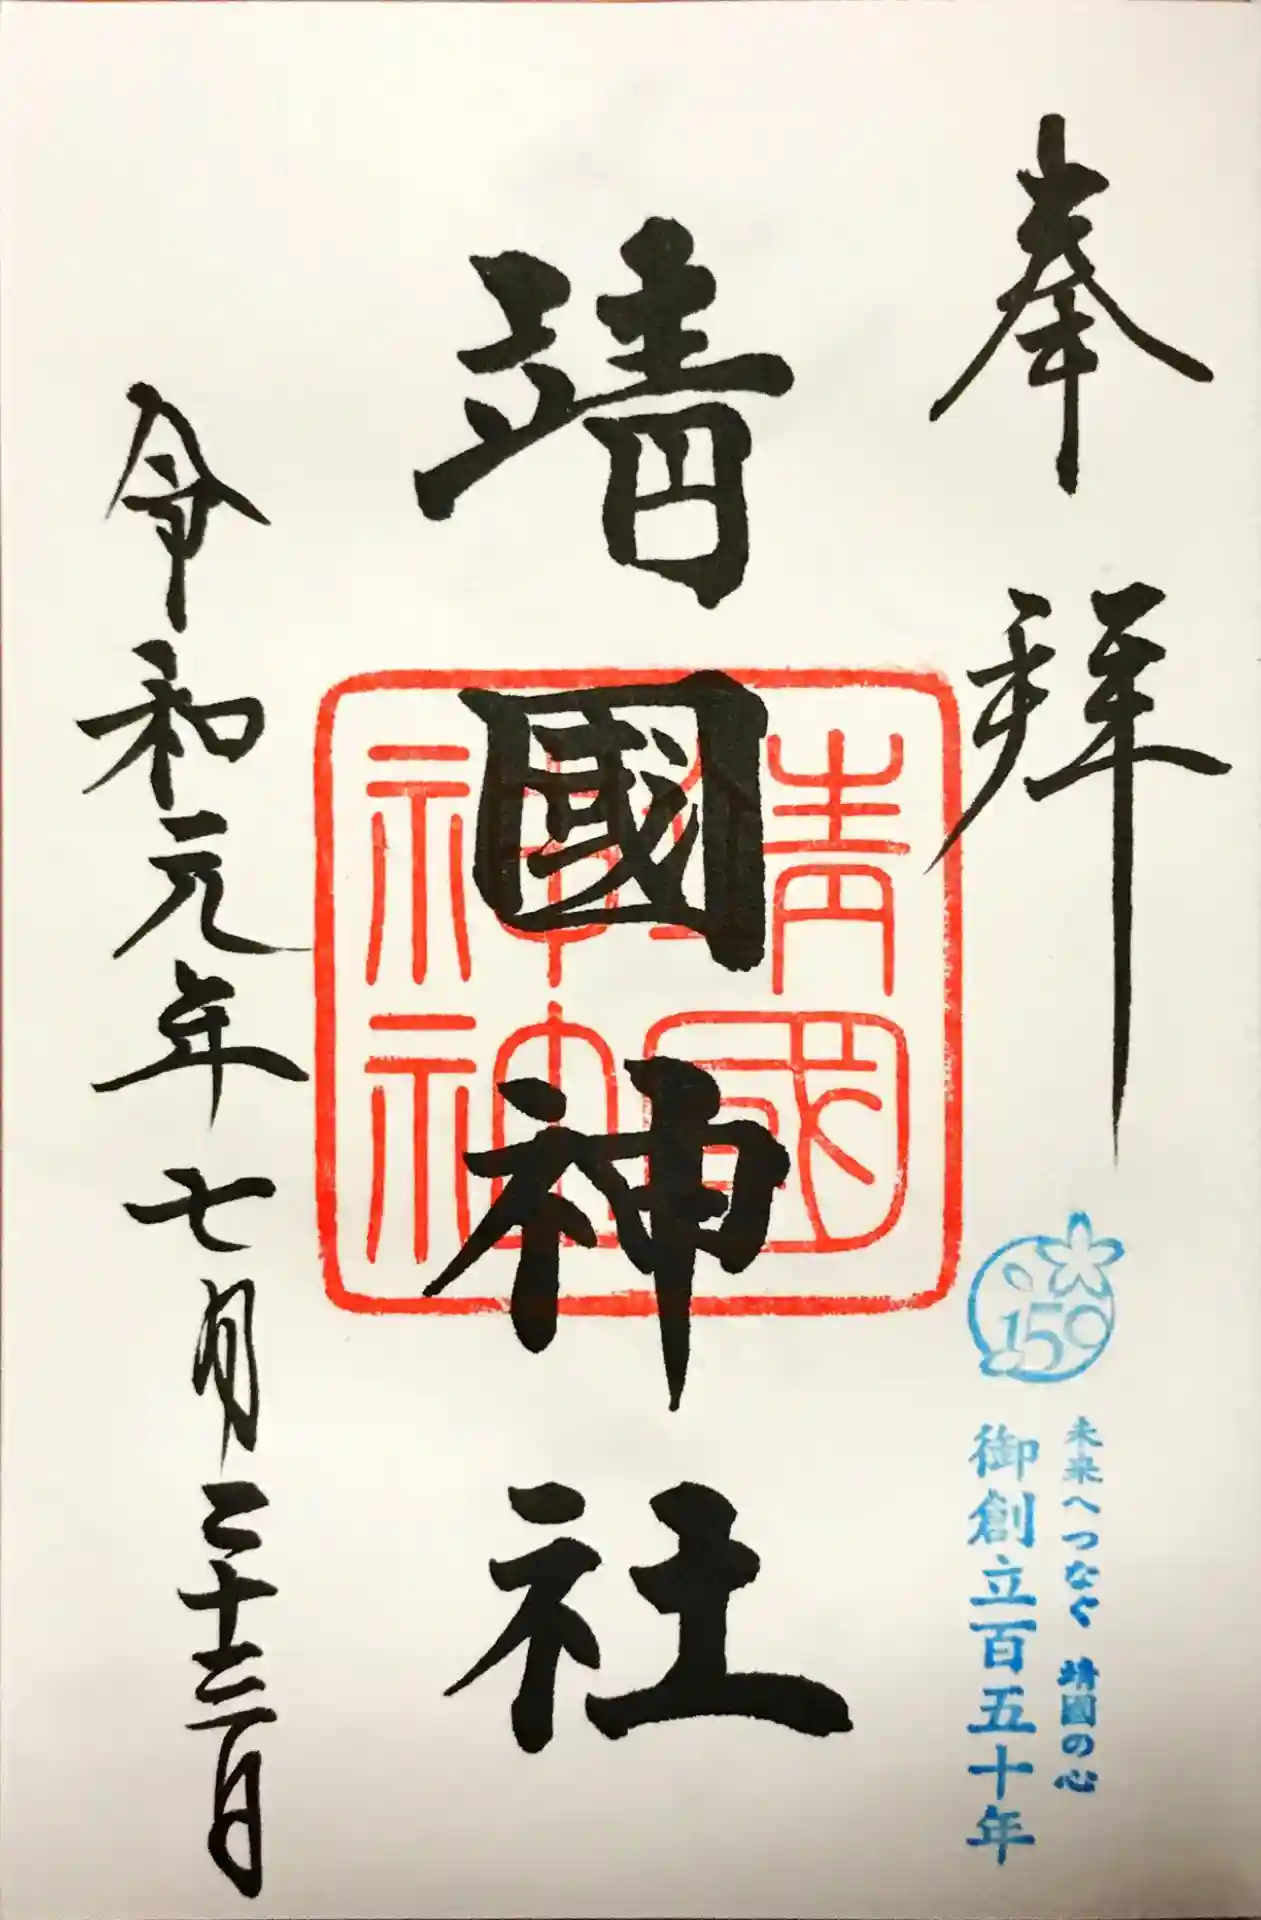 奉拜
150
未来へつなぐ 靖國の心
御創立百五十年
靖國神社
靖國神社
令和元年七月二十三日